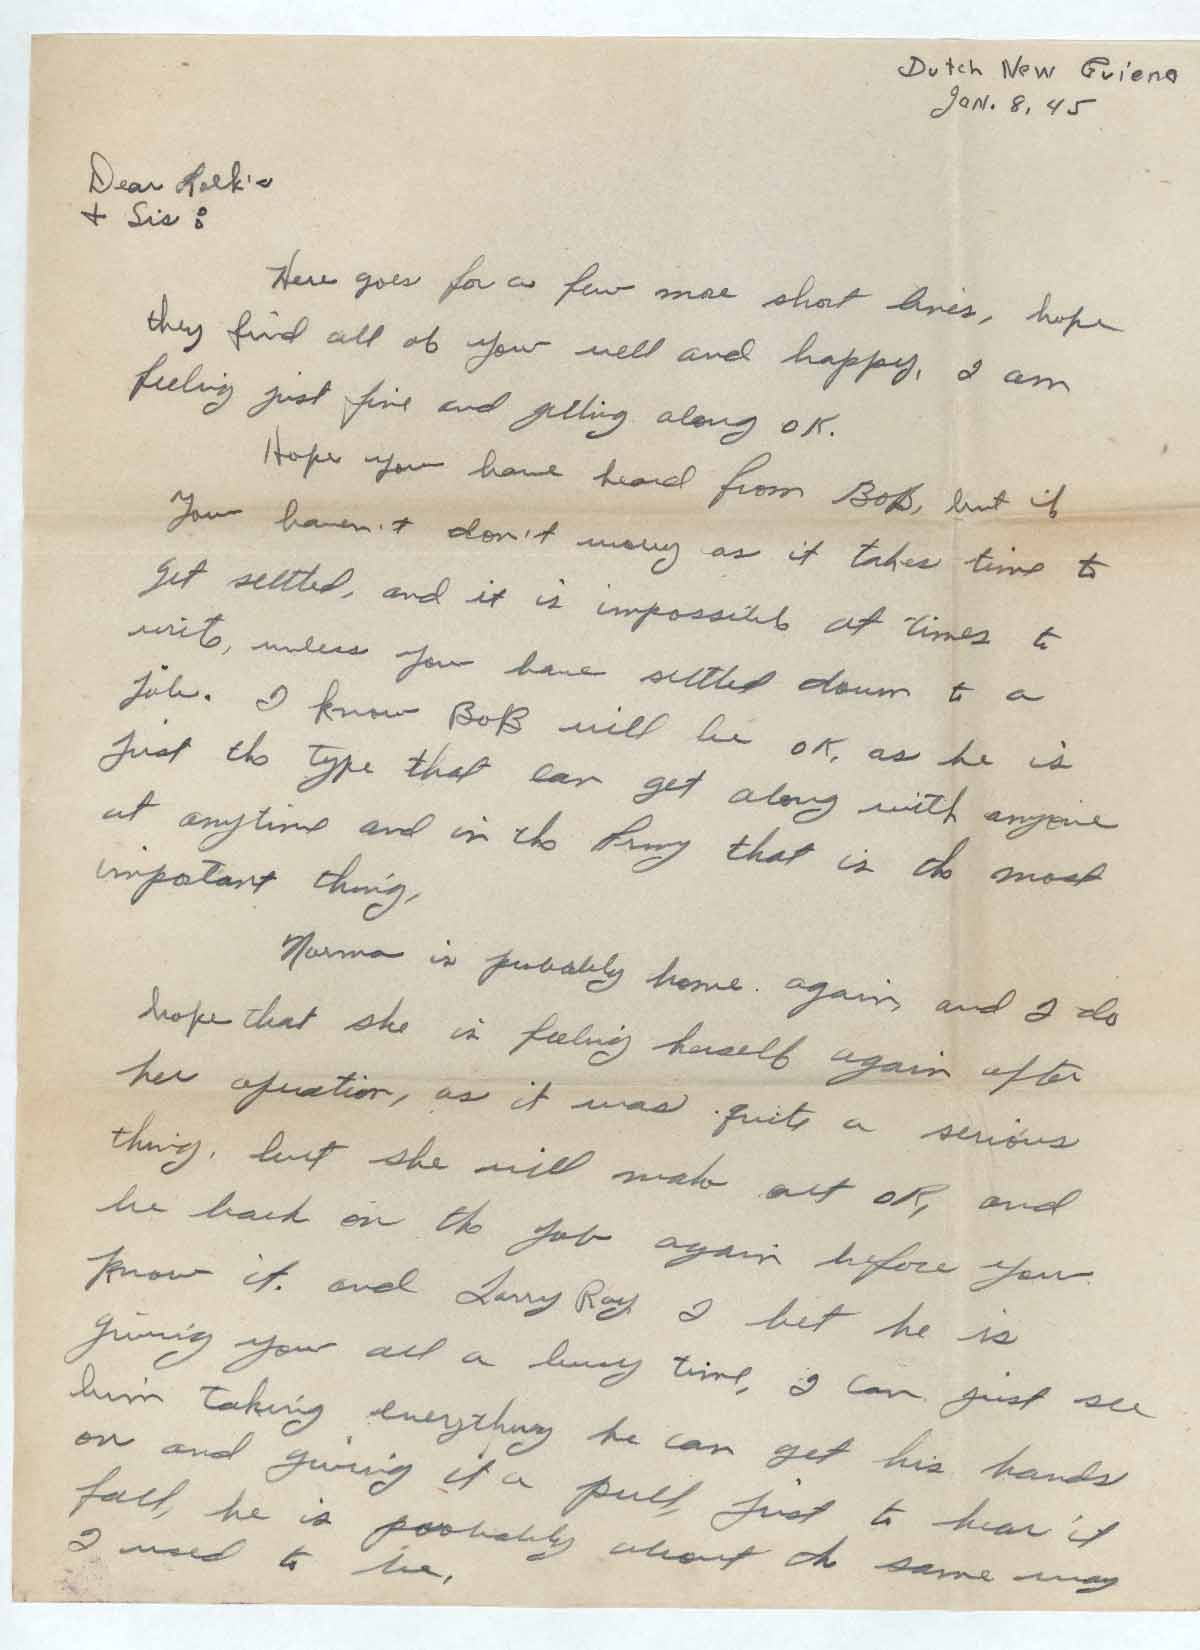 Dutch New Guiena
Jan. 8, 45
Dear Folk's
+ Sis:
Here goes for a few more short lines, hope
they find all of you well and happy. I am
feeling just fine and getting along OK.
Hope you have heard from BoB, but if
you haven't don't worry as it takes time to
get settled, and it is impossible at times to
write, unless you have settled down to a
job. I know BoB will be OK, as he is
just the type that can get along with anyone
at anytime and in the Army that is the most
important thing,
Norma is probably home again, and I do
hope that she is feeling herself again after
her operation, as it was quite a serious
thing, but she will make out OK, and
be back on the job again before you
know it. and Larry Ray I bet he is
giving you all a busy time, I can just see
him taking everything he can get his hands
on and giving it a pull, just to hear it
fall, he is probably about the same way
I used to be.